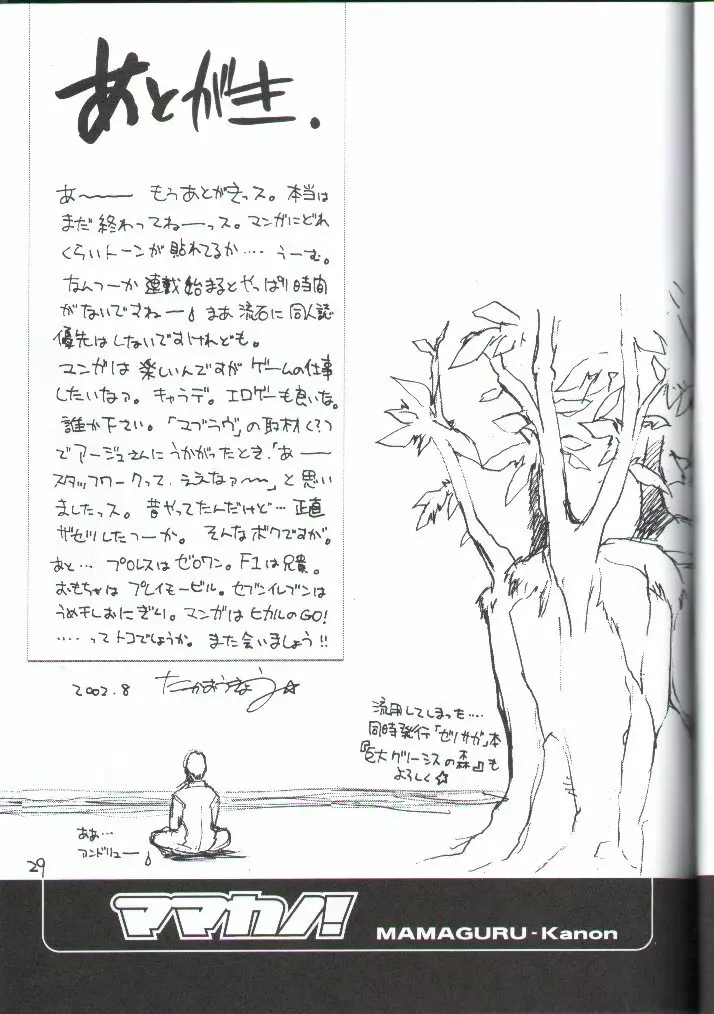 あとがき.
あ〜〜 もうあとがきっス。本当は
まだ終わってねーっス。マンガにどれ
くらいトーンが貼れてるか‥‥うーむ。
なんつーか連載始まるとやっぱり時間
がないですねー♪まあ流石に同人誌
優先はしないですけれども。
マンガは楽しいんですがゲームの仕事
したいなァ。キャラデ。エロゲーも良いな。
誰か下さい。「マブラヴ」の取材くるっ
でアージュさんにうかがったとき、「あー
スタッフワークって、ええなァ〜〜」と思い
ましたっス。昔やってたんだけど…正直
ザセツしたっつーか。そんなボクですが。
あと… プロレスはゼロワン。F1は兄貴。
おもちゃはプレイモービル。セブンイレブンは
うめぼしおにぎり。マンガはヒカルのGO!
‥‥ってトコでしょうか。また会いましょう!!
2002.8
流用してしまった‥‥
同時発行「ゼノサガ」本
『巨大グリーシスの森』も
よろしく☆
ああ…
アンドリュー♪
29
ママカノ!
MAMAGURU-Kanon